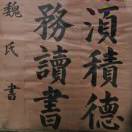 須積德
務讀書
魏氏書